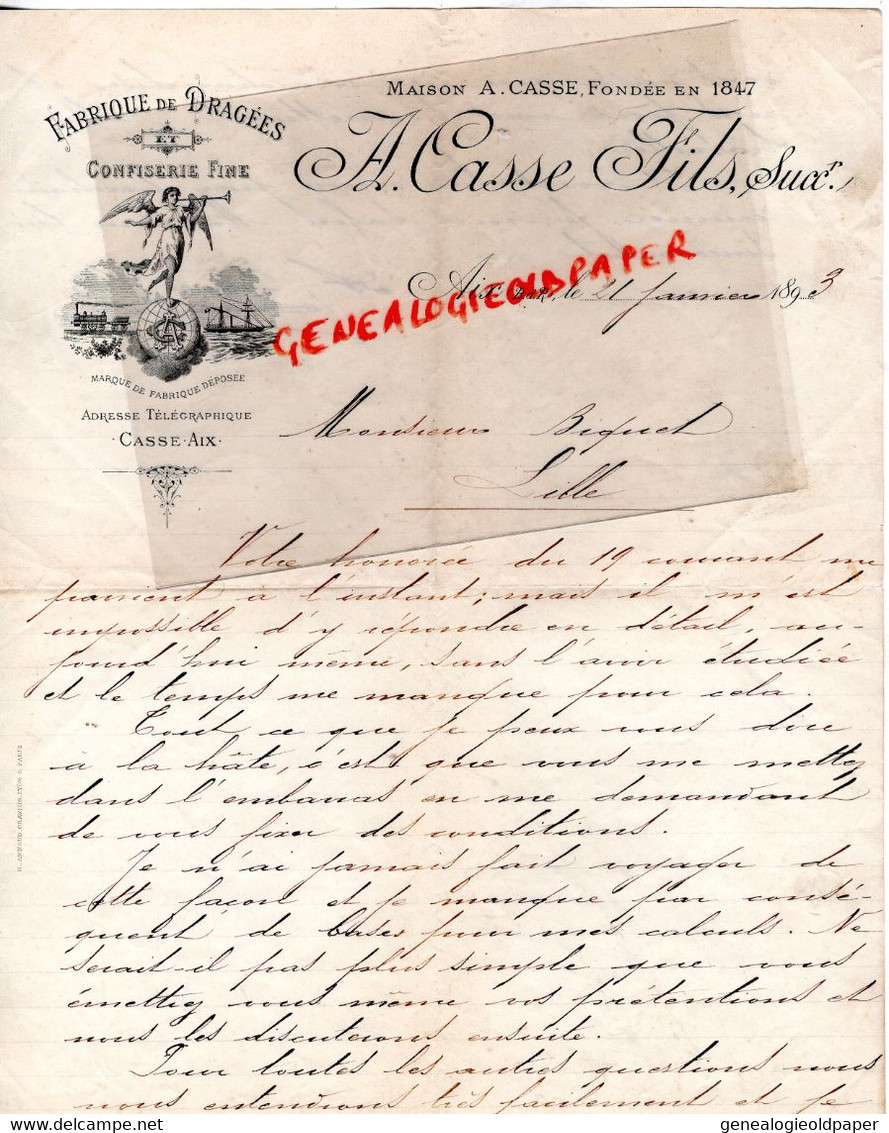 MAISON A. CASSE, FONDÉE EN 1847
A. Casse Fils, Succr.
FABRIQUE DE DRAGÉES
ET
CONFISERIE FINE
MARQUE DE FABRIQUE DÉPOSÉE
ADRESSE TÉLÉGRAPHIQUE
·CASSE·AIX·
Aix le 21 janvier 1893
GENEALOGIEOLDPAPER
Monsieur Biquet
Lille
Votre honorée du 19 courant me
parvient à l'instant; mais il m'est
impossible d'y répondre en détail, au-
jourd'hui même, sans l'avoir étudiée
et le temps me manque pour cela.
Tout ce que je peux vous dire
à la hâte, c'est que vous me mettez
dans l'embarras en me demandant
de vous fixer des conditions.
Je n'ai jamais fait voyager de
cette façon et je manque par consé-
quent de bases pour mes calculs. Ne
serait-il pas plus simple que vous
émettiez vous même vos prétentions et
nous les discuterons ensuite.
Pour toutes les autres questions nous
nous entendrons très facilement et je
H. ARNAUD GRAVEUR, LYON & PARIS
delcampe.net
genealogieoldpaper